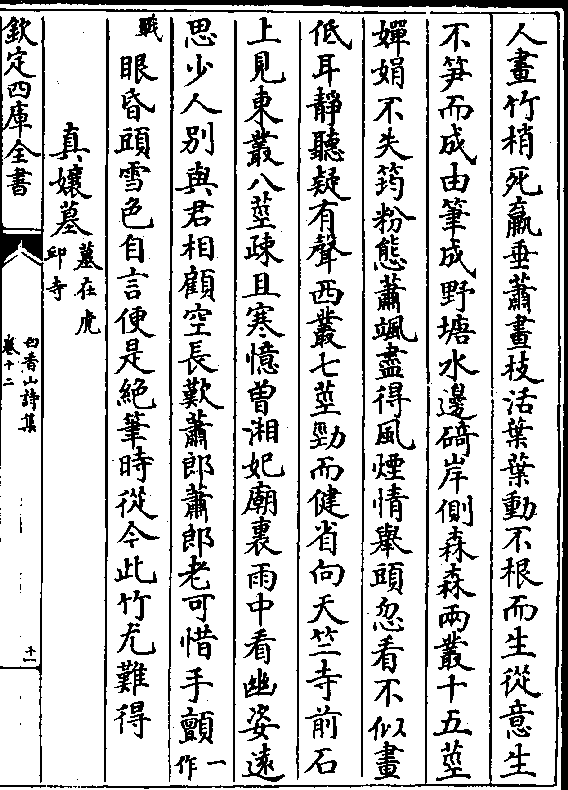 人畫竹梢死羸垂蕭畫枝活葉葉動不根而生從意生
不笋而成由筆成野塘水邊碕岸側森森兩叢十五莖
嬋娟不失筠粉態蕭颯盡得風煙情舉頭忽看不似畫
低耳靜聽疑有聲西叢七莖勁而健省向天竺寺前石
上見東叢八莖疎且寒憶曾湘妃廟裏雨中看幽姿遠
思少人別與君相顧空長歎蕭郎蕭郎老可惜手顫一作
戰眼昏頭雪色自言便是絶筆時從今此竹尤難得
真孃墓墓在虎邱寺
欽定四庫全書
白香山詩集
卷十二
十一